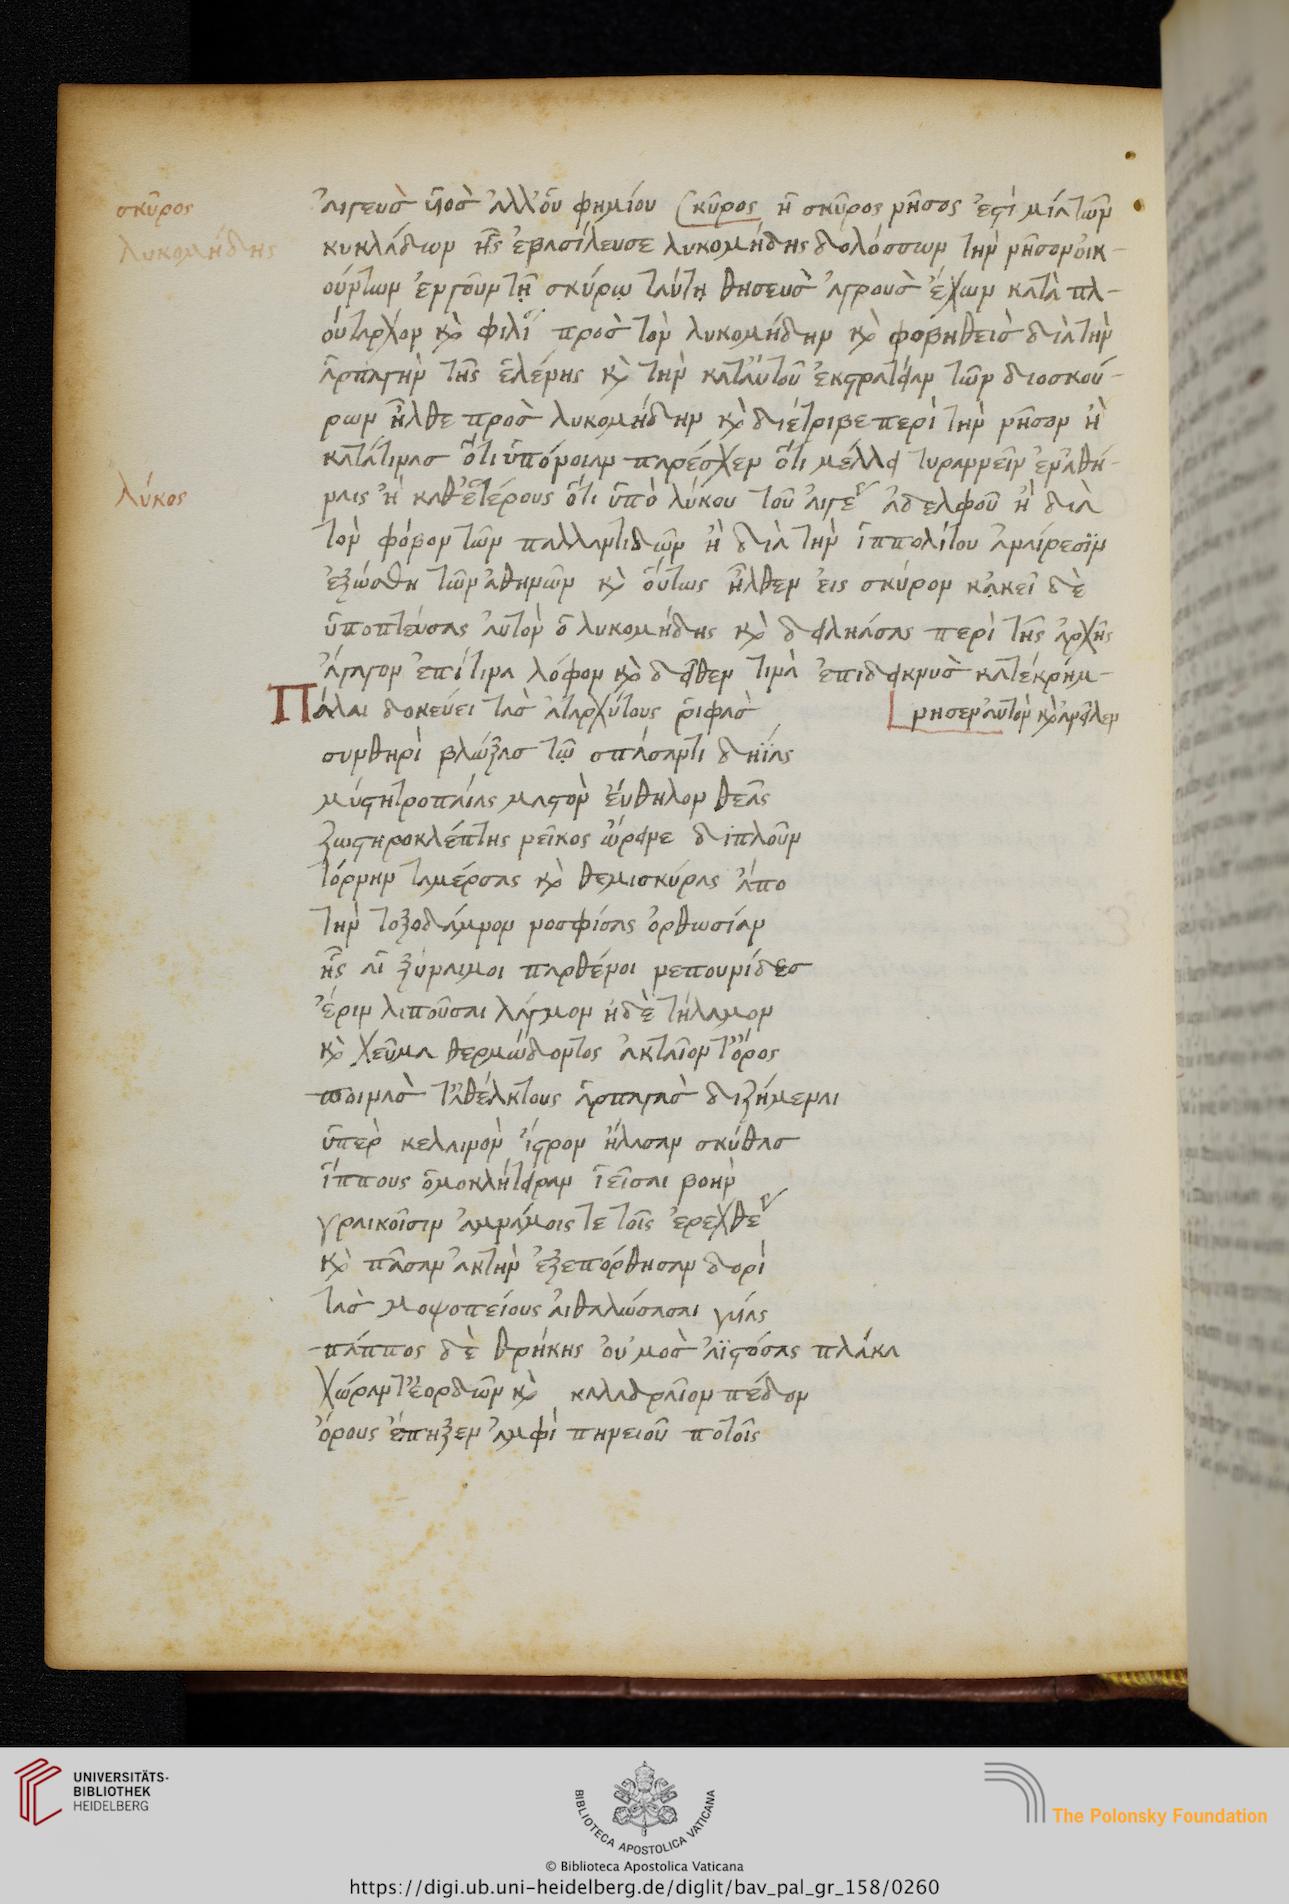 σκῦρος
λυκομήδης
λύκος
αἰγεὺς υἱὸς ἀλλ' οὖ φημίου Σκῦρος ἡ σκῦρος νῆσος ἐστὶ μία τῶν
κυκλάδων ἧς ἐβασίλευσε λυκομήδης δολόσσων τὴν νῆσον οἰκ-
ούντων ἐν γοῦν τῇ σκύρῳ ταύτῃ θησεὺς ἀγροὺς ἔχων κατὰ πλ-
ούταρχον καὶ φιλί πρὸς τὸν λυκομήδην καὶ φοβηθεὶς διὰ τὴν
ἁρπαγὴν τῆς ἑλένης καὶ τὴν κατ' αὐτοῦ ἐκστρατείαν τῶν διοσκού-
ρων ἦλθε πρὸς λυκομήδην καὶ διέτριβε περὶ τὴν νῆσον ἢ
κατά τινας ὅτι ὑπόνοιαν παρέσχεν ὅτι μέλλει τυραννεῖν ἐν ἀθή-
ναις ἢ καθ' ἑτέρους ὅτι ὑπὸ λύκου τοῦ αἰγέ ἀδελφοῦ ἢ διὰ
τὸν φόβον τῶν παλλαντιδῶν ἢ διὰ τὴν ἱππολίτου ἀναίρεσϊν
ἐξώσθη τῶν ἀθηνῶν καὶ οὕτως ἦλθεν εἰς σκύρον κἀκεῖ δὲ
ὑποπτεύσας αὐτὸν ὁ λυκομήδης καὶ δειλιάσας περὶ τῆς ἀρχῆς
ἀγαγὼν ἐπί τινα λόφον καὶ δεῖθεν τινὰ ἐπιδεικνὺς κατεκρήμ-
νησεν αὐτὸν καὶ ἀνεῖλεν
Πάλαι δοκεύει τὰς ἀταρχύτους ῥιφὰς
σὺν θηρὶ βλώξας τῷ σπάσαντι δηΐας
μύστῃ τροπαίας μαστὸν εὔθηλον θεᾶς
ζωστηροκλέπτης νεῖκος ὤρινε διπλοῦν
τόρνην τ' ἀμέρσας καὶ θεμισκύρας ἄπο
τὴν τοξόδαμνον νοσφίσας ὀρθωσίαν
ἧς αἱ ξύναιμοι παρθένοι νεπουνίδες
ἔριν λιποῦσαι λάγμον ἠδὲ τήλαμον
καὶ χεῦμα θερμώδοντος ἀκταῖον τ' ὄρος
ποινὰς τ' ἀθέλκτους ἁρπαγὰς διζήμεναι
ὑπὲρ κελαινὸν ἴστρον ἤλασαν σκύθας
ἵππους ὁμοκλήτειραν ἱεῖσαι βοὴν
γραικοῖσιν ἀμνάμοις τε τοῖς ἐρεχθε
καὶ πᾶσαν ἀκτὴν ἐξεπόρθησαν δορὶ
τὰς μοψοπείους αἰθαλώσασαι γύας
πάππος δὲ θρήκης οὑμὸς ἀϊστώσας πλάκα
χώραν τ' ἐορδῶν καὶ καλαδραῖον πέδον
ὅρους ἔπηξεν ἀμφὶ πηνειοῦ ποτοῖς
UNIVERSITÄTS-
BIBLIOTHEK
HEIDELBERG
BIBLIOTECA APOSTOLICA VATICANA
© Biblioteca Apostolica Vaticana
The Polonsky Foundation
https://digi.ub.uni-heidelberg.de/diglit/bav_pal_gr_158/0260